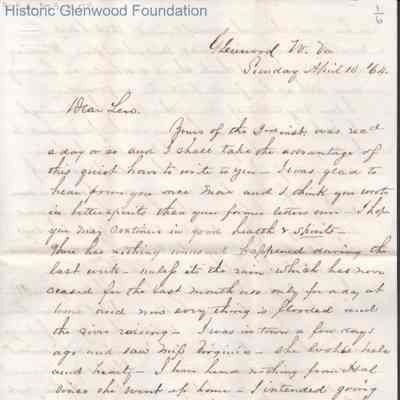 Historic Glenwood Foundation
1/6
Glenwood W. Va
Sunday April 10 '64.
Dear Lew.
Yours of the 3d inst. was recd
a day or so and I shall take the advantage of
this quiet hour to write to you - I was glad to
hear from you once more and I think you wrote
in better spirits than your former letters were - I hope
you may continue in good health & Spirits -
There has nothing unusual happened during the
last week - unless it's the rain which has now
ceased for the last month use only for a day at
time and now every thing is flooded and
the river raising - I was in town a few days
ago and saw Miss Virginia - she looks hale
and hearty - I have heard nothing from Hal
since she went up home - I intended going